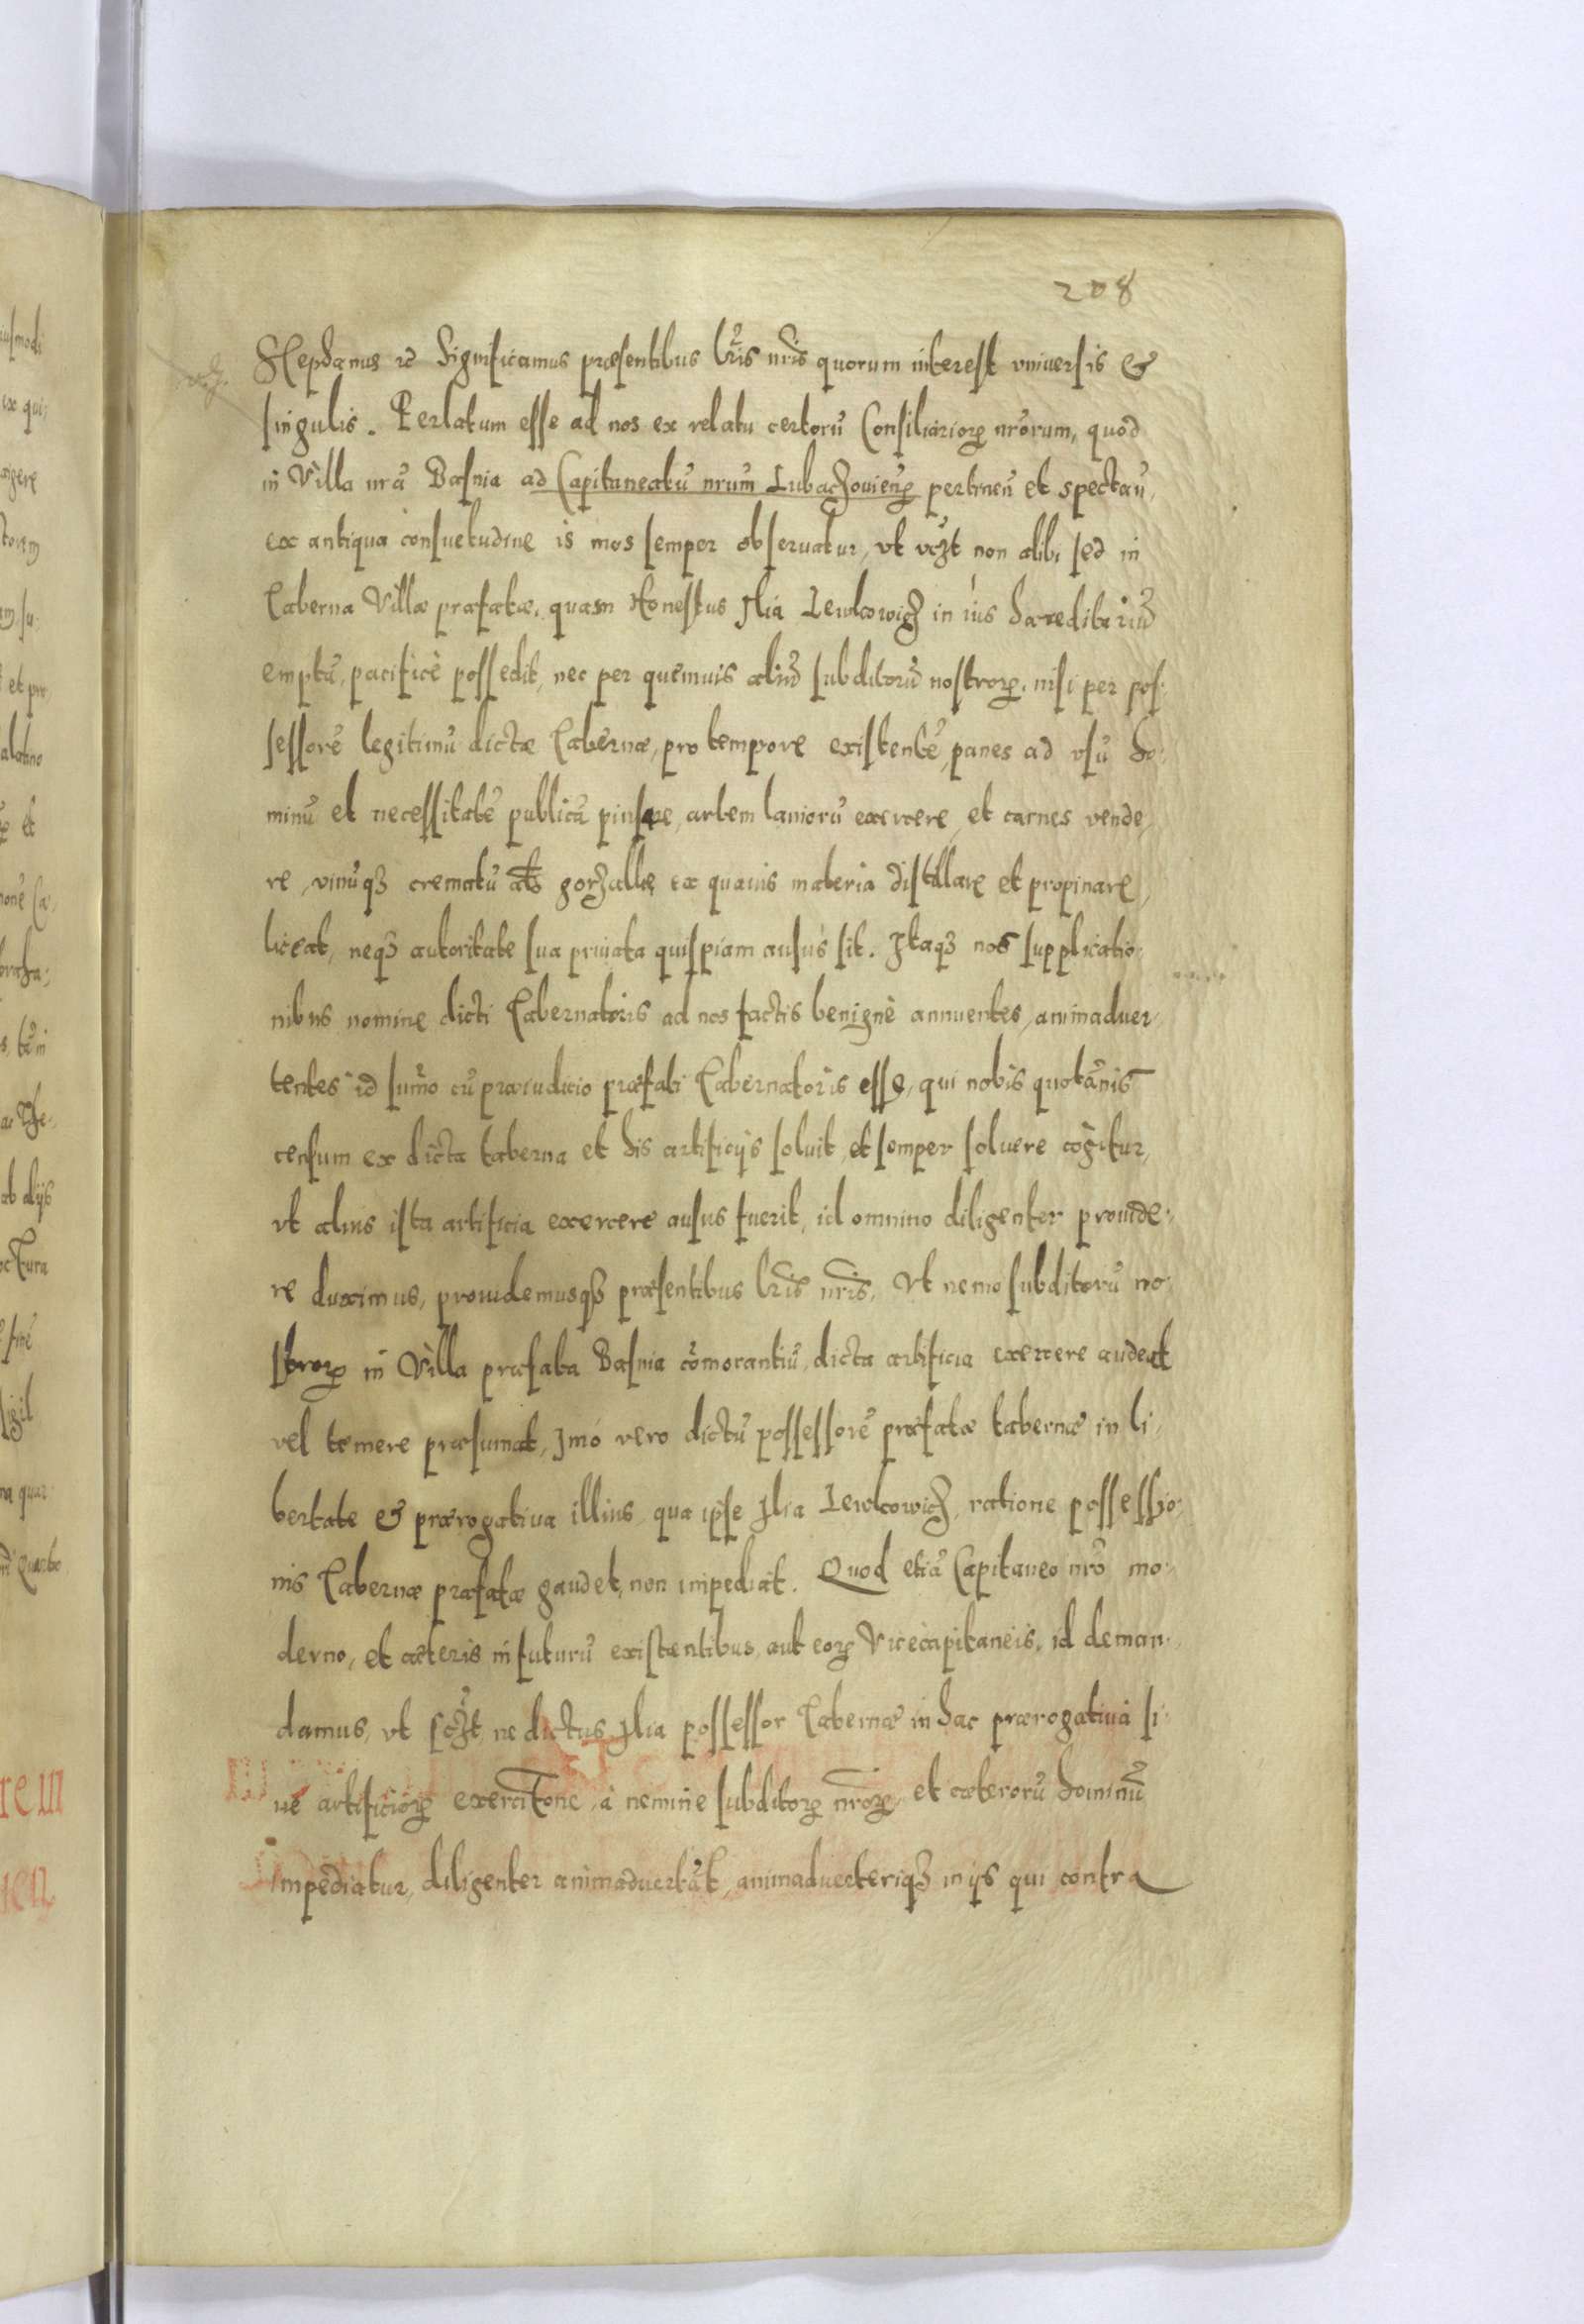 208
Stephanus etc Significamus præsentibus lr̃is nr̃is quorum interest vniuersis &
singulis. Perlatum esse ad nos ex relatu certorũ Consiliarioꝝ nr̃orum, quod
in Villa nr̃a Basnia ad Capitaneatũ nrũm Lubaczouieñ pertineñ et spectañ,
ex antiqua consuetudine is mos semper obseruatur, vt vcz̃t non alibi sed in
Taberna Villæ præfatæ, quam Honestus Ilia Lewkowicz in iùs hæreditariũ
emptã, pacificè possedit, nec per quemuis aliũ subditorũ nostroꝝ, nisi per pos:
sessorẽ legitimũ dictæ Tabernæ, pro tempore existentẽ, panes ad vsũ ho:
minũ et necessitatẽ publicã pinsere, artem laniorũ exercere, et carnes vende,
re, vinũqꝫ crematũ al̃s gorzalkę ex quauis materia distillare et propinare,
liceat, neqꝫ autoritate sua priuata quispiam ausus sit. Itaqꝫ nos supplicatio:
nibus nomine dicti Tabernatoris ad nos factis benignè annuentes, animaduer,
tentes id sum̃o cũ præiudicio præfati Tabernatoris esse, qui nobis quotãnis
censum ex dicta taberna et his artificijs soluit, et semper soluere cogitur,
vt alius ista artificia exercere ausus fuerit, id omnino diligenter prouide:
re duximus, prouidemusqꝫ præsentibus lr̃is nr̃is, Vt nemo subditorũ no:
stroꝝ in Villa præfata Basnia cõmorantiũ, dicta artificia exercere audeat
vel temere præsumat, Imo vero dictũ possessorẽ præfatæ tabernæ in li,
bertate & prærogatiua illius, qua ipse Ilia Lewkowicz, ratione possessio:
nis Tabernæ præfatæ gaudet, non impediat. Quod etiã Capitaneo nr̃o mo:
derno, et cæteris in futurũ existentibus, aut eoꝝ Vicecapitaneis, id deman:
damus, vt scz̃t, ne dictus Ilia possessor Tabernæ in hac prærogatiua si:
ue artificioꝝ exercit̃one, à nemine subditoꝝ nr̃oꝝ, et cæterorũ hominũ
impediatur, diligenter animaduertãt, animaduerteriqꝫ in ijs qui contra